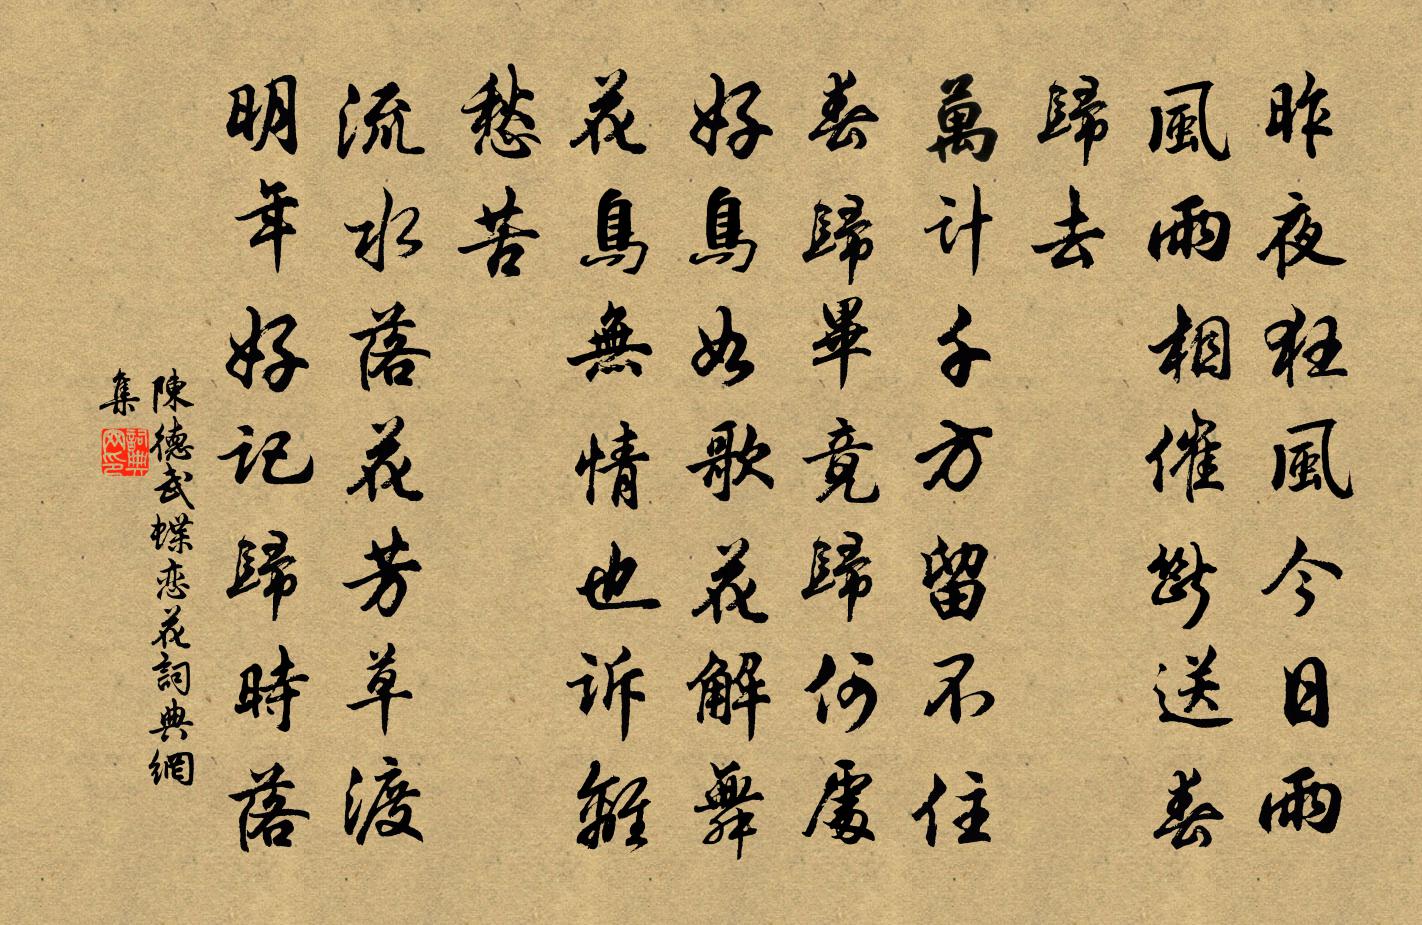 昨夜狂風今日雨
風雨相催斷送春
歸去
萬計千方留不住
春歸畢竟歸何處
好鳥如歌花解舞
花鳥無情也訴離
愁苦
流水落花芳草渡
明年好記歸時落
陳德武蝶恋花詞典網
集
詞典
网印